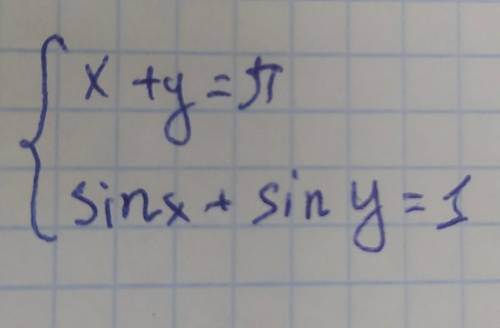 x + y = π
sin x + sin y = 1